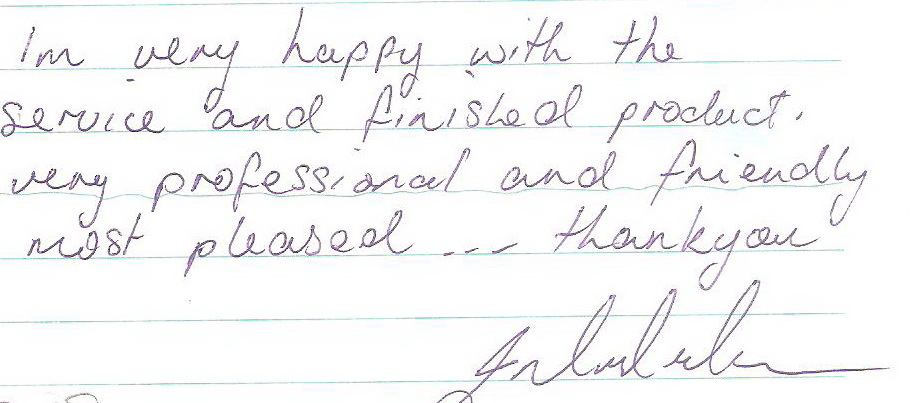 Im very happy with the
service and finished product.
very professional and friendly
most pleased --- thankyou